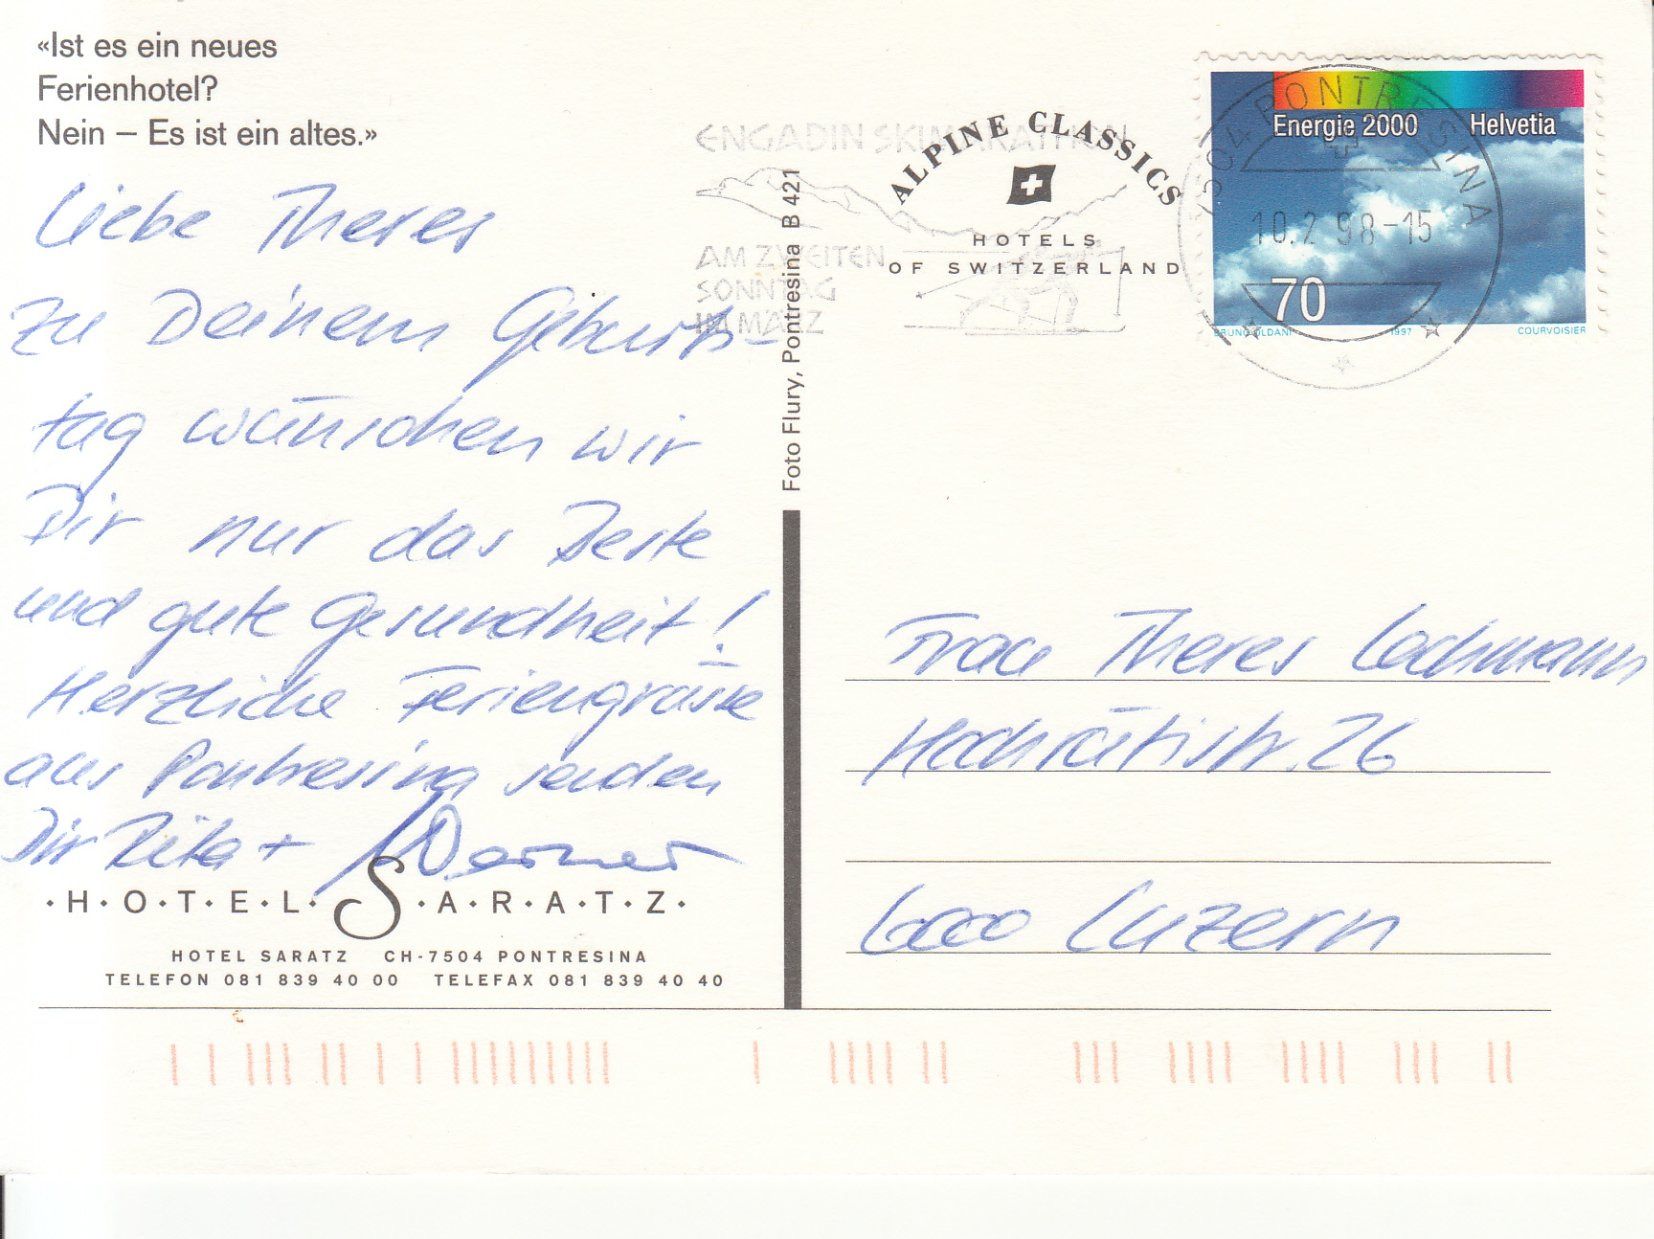 «Ist es ein neues
Ferienhotel?
Nein – Es ist ein altes.»
Liebe Theres
zu Deinem Geburts-
tag wünschen wir
Dir nur das Beste
und gute Gesundheit!
Herzliche Feriengrüsse
aus Pontresina senden
Dir Rita + Werner
·H·O·T·E·L·SARATZ·
HOTEL SARATZ CH-7504 PONTRESINA
TELEFON 081 839 40 00 TELEFAX 081 839 40 40
Foto Flury, Pontresina B 421
ENGADIN SKIMARATHON
AM ZWEITEN
SONNTAG
IM MÄRZ
ALPINE CLASSICS
HOTELS
OF SWITZERLAND
Energie 2000 Helvetia
70
BRUNO OLDANI 1997 COURVOISIER
7504 PONTRESINA
10.2.98-15
Frau Theres Lachmann
Hochrütistr. 26
6000 Luzern